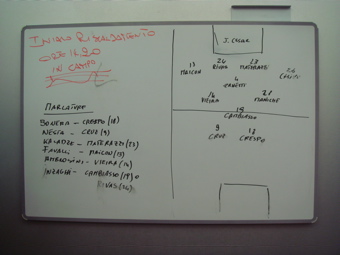 INIZIO RISCALDAMENTO
ORE 14.20
IN CAMPO
J. CESAR
13 MAICON
24 RIVAS
23 MATERAZZI
26 CHIVU
4 ZANETTI
14 VIEIRA
21 MANICHE
19 CAMBIASSO
9 CRUZ
18 CRESPO
MARCATURE
BONERA - CRESPO (18)
NESTA - CRUZ (9)
KALADZE - MATERAZZI (23)
FAVALLI - MAICON (13)
AMBROSINI - VIEIRA (14)
INZAGHI - CAMBIASSO (19) O
RIVAS (24)